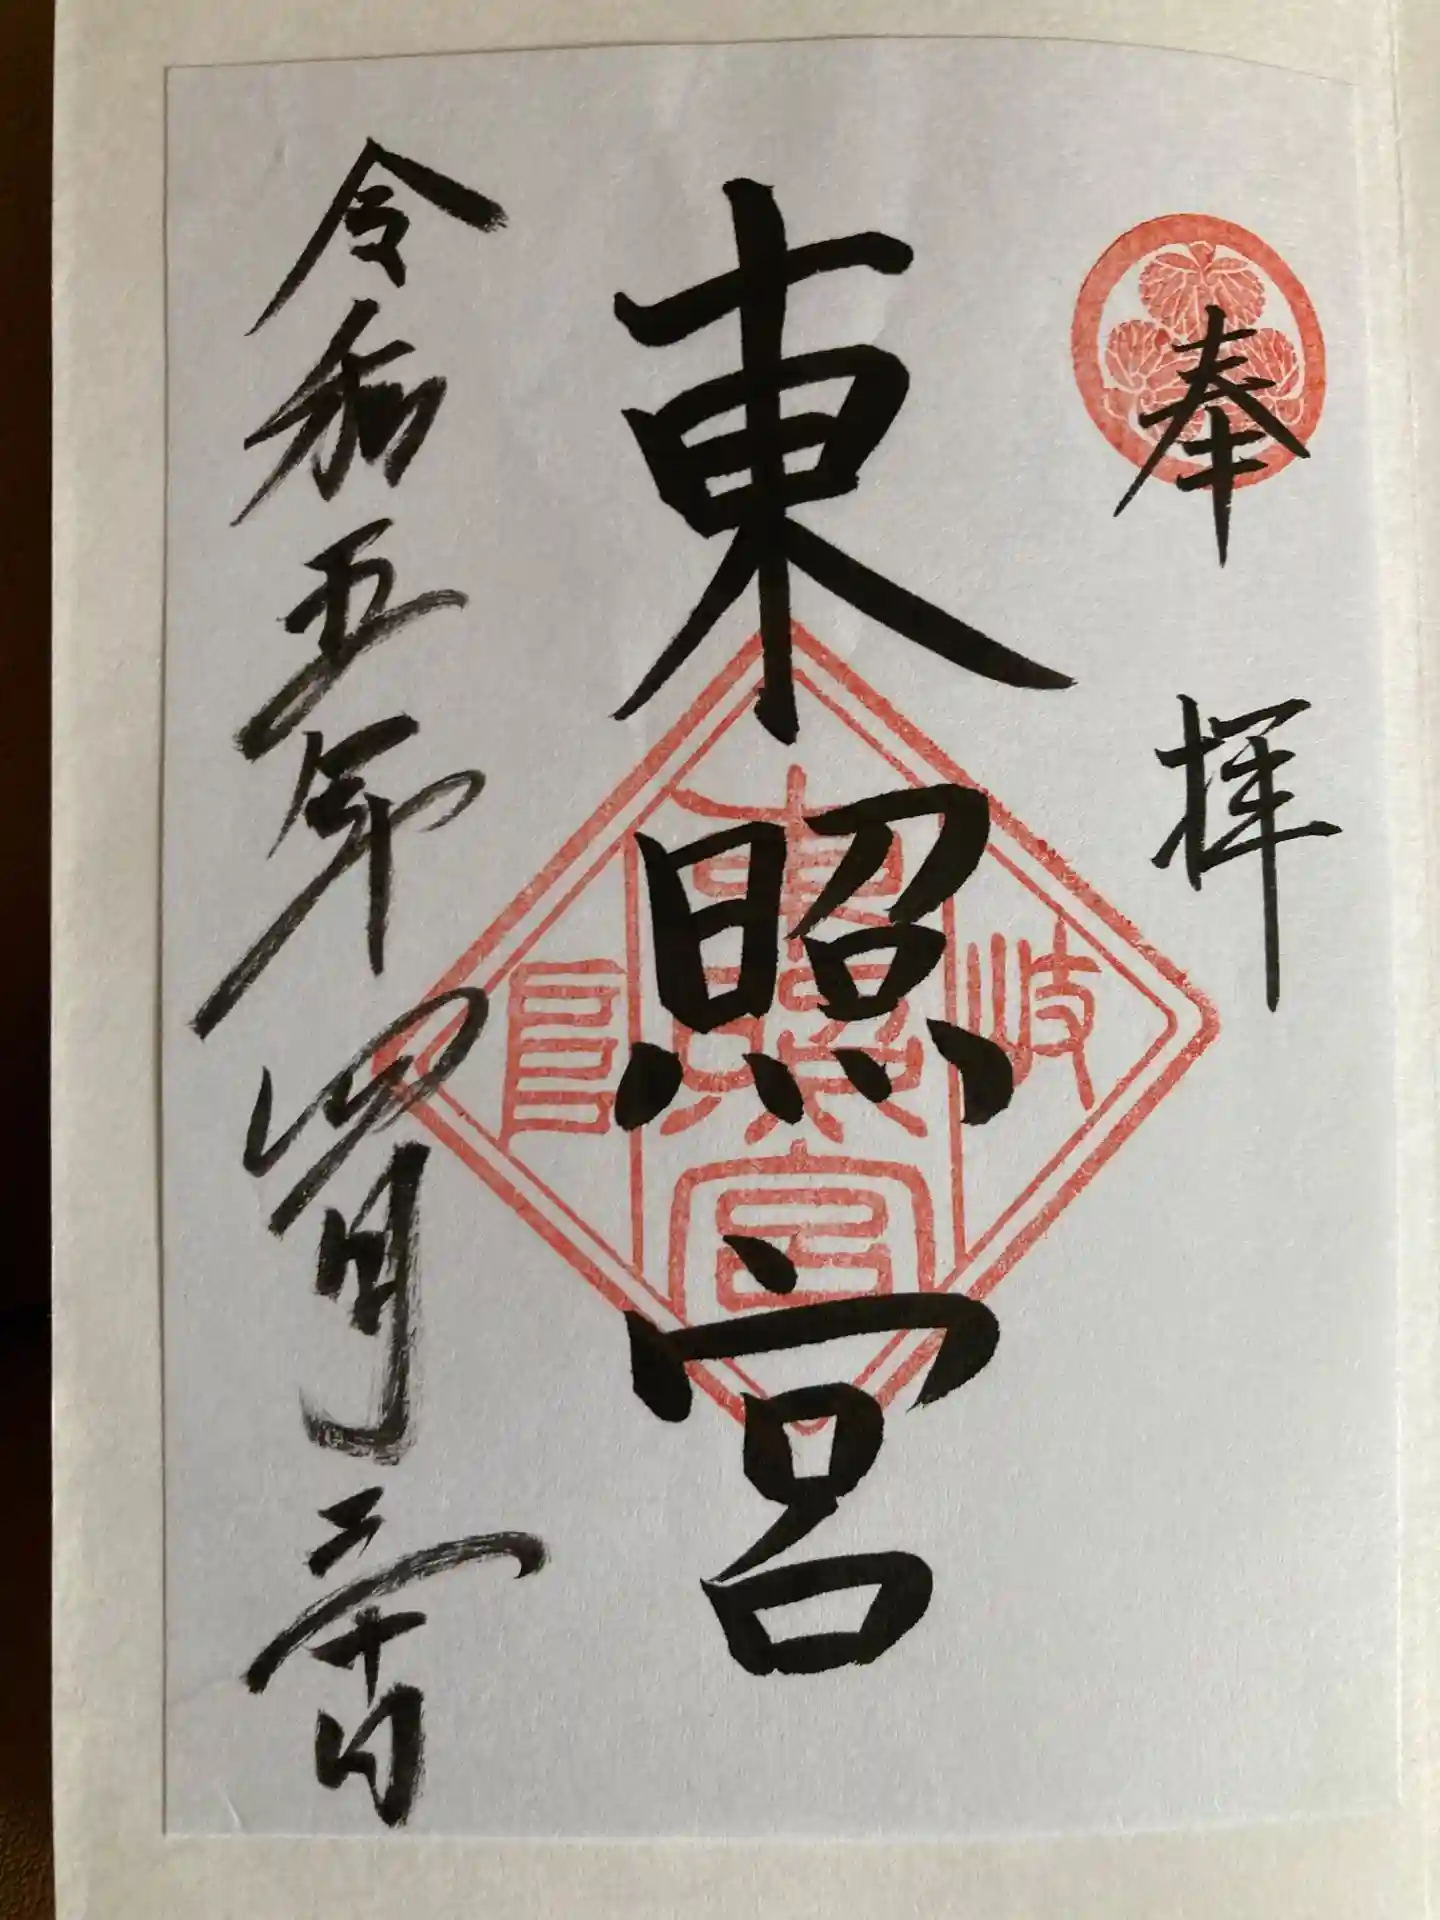 奉拝
東照宮
岐
東照宮
阜
令和五年四月三十日